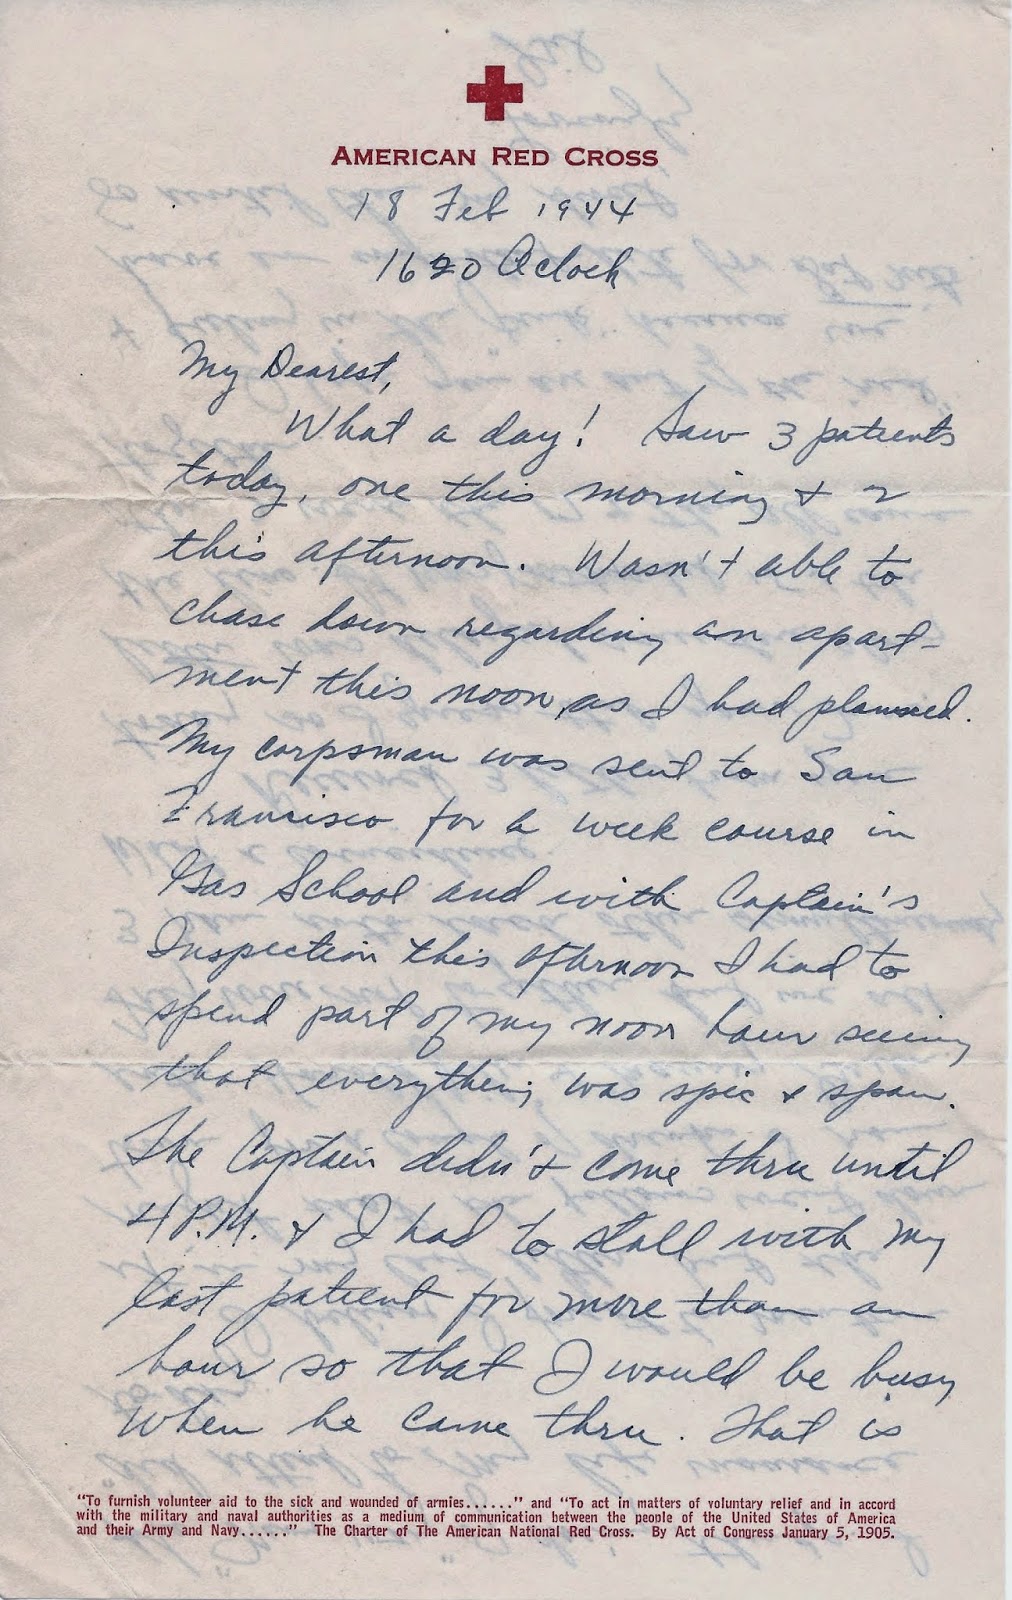 AMERICAN RED CROSS
18 Feb 1944
1620 Oclock
My Dearest,
What a day! Saw 3 patients
today, one this morning & 2
this afternoon. Wasn't able to
chase down regarding an apart-
ment this noon, as I had planned.
My corpsman was sent to San
Francisco for a week course in
Gas School and with Captain's
Inspection this afternoon I had to
spend part of my noon hour seeing
that everything was spic & span.
The Captain didn't come thru until
4 P.M. & I had to stall with my
last patient for more than an
hour so that I would be busy
when he came thru. That is
"To furnish volunteer aid to the sick and wounded of armies......" and "To act in matters of voluntary relief and in accord
with the military and naval authorities as a medium of communication between the people of the United States of America
and their Army and Navy......" The Charter of The American National Red Cross. By Act of Congress January 5, 1905.